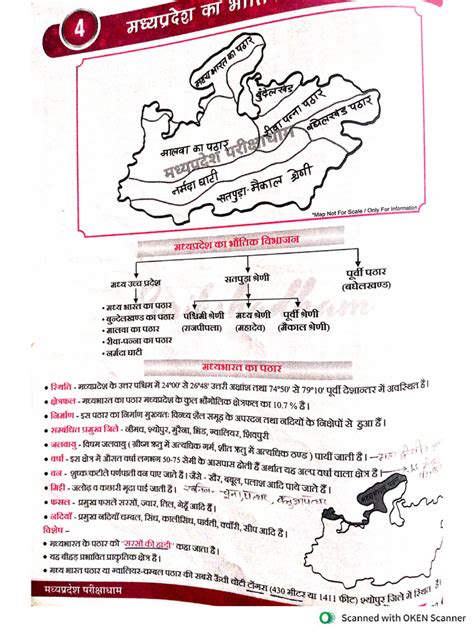 4
मध्यप्रदेश का
मध्य भारत का पठार
बुन्देलखण्ड
रीवा पन्ना पठार
बघेलखण्ड पठार
मालवा का पठार
मध्यप्रदेश परीक्षाधाम
नर्मदा घाटी
सतपुड़ा-मैकाल श्रेणी
*Map Not For Scale / Only For Information
मध्यप्रदेश का भौतिक विभाजन
मध्य उच्च प्रदेश
सतपुड़ा श्रेणी
पूर्वी पठार
(बघेलखण्ड)
• मध्य भारत का पठार
• बुन्देलखण्ड का पठार
• मालवा का पठार
• रीवा-पन्ना का पठार
• नर्मदा घाटी
पश्चिमी श्रेणी
(राजपीपला)
मध्य श्रेणी
(महादेव)
पूर्वी श्रेणी
(मैकाल श्रेणी)
मध्यभारत का पठार
• स्थिति - मध्यप्रदेश के उत्तर पश्चिम में 24°00' से 26°48' उत्तरी अक्षांश तथा 74°50' से 79°10' पूर्वी देशान्तर में अवस्थित है।
• क्षेत्रफल - मध्यभारत का पठार मध्यप्रदेश के कुल भौगोलिक क्षेत्रफल का 10.7 % है।
• निर्माण - इस पठार का निर्माण मुख्यतः विन्ध्य शैल समूह के अपरदन तथा नदियों के निक्षेपों से हुआ है।
• सम्बंधित प्रमुख जिले - भीमच, श्योपुर, मुरैना, भिंड, ग्वालियर, शिवपुरी
• जलवायु - विषम जलवायु ( ग्रीष्म ऋतु में अत्यधिक गर्म, शीत ऋतु में अत्यधिक ठण्ड ) पायी जाती है।
• वर्षा - इस क्षेत्र में औसत वर्षा लगभग 50-75 सेमी के आसपास होती है अर्थात यह अल्प वर्षा वाला क्षेत्र है।
• वन - शुष्क कटीले पर्णपाती वन पाए जाते है। जैसे - खैर, बबूल, पलाश आदि पाये जाते हैं।
• मिट्टी - जलोढ़ व कछारी मृदा पाई जाती है।
• फसल - प्रमुख फसले सरसों, ज्वार, तिल, गेहूँ आदि है।
• नदियाँ - प्रमुख नदियाँ चम्बल, सिंध, कालीसिंध, पार्वती, क्वाँरी, सीप आदि है।
विशेष -
• मध्यभारत के पठार को "सरसों की हांडी" कहा जाता है।
• यह बीहड़ प्रभावित प्राकृतिक क्षेत्र है।
• मध्य भारत पठार या ग्वालियर-चम्बल पठार की सबसे ऊँची चोटी टोंगरा (430 मीटर या 1411 फीट) श्योपुर जिले में स्थित है।
मध्यप्रदेश परीक्षाधाम
Scanned with OKEN Scanner